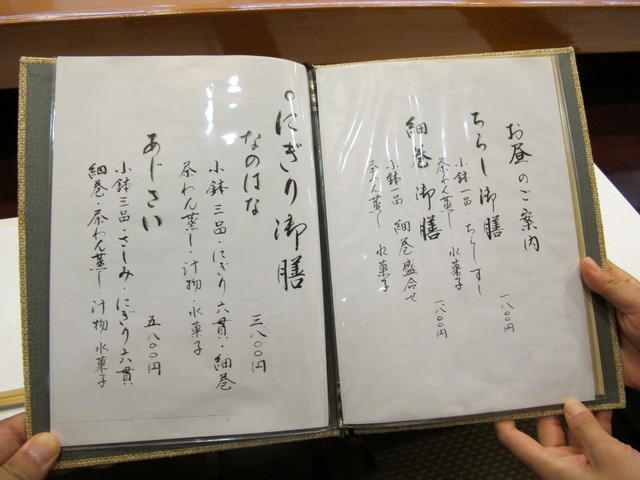 お昼のご案内
ちらし御膳 一八〇〇円
小鉢一品・ちらしすし
茶わん蒸し 水菓子
細巻御膳 一八〇〇円
小鉢一品 細巻盛合せ
茶わん蒸し 水菓子
にぎり御膳
なのはな 三八〇〇円
小鉢三品・にぎり六貫・細巻
茶わん蒸し・汁物・水菓子
あじさい 五八〇〇円
小鉢三品・さしみ・にぎり六貫
細巻・茶わん蒸し 汁物 水菓子